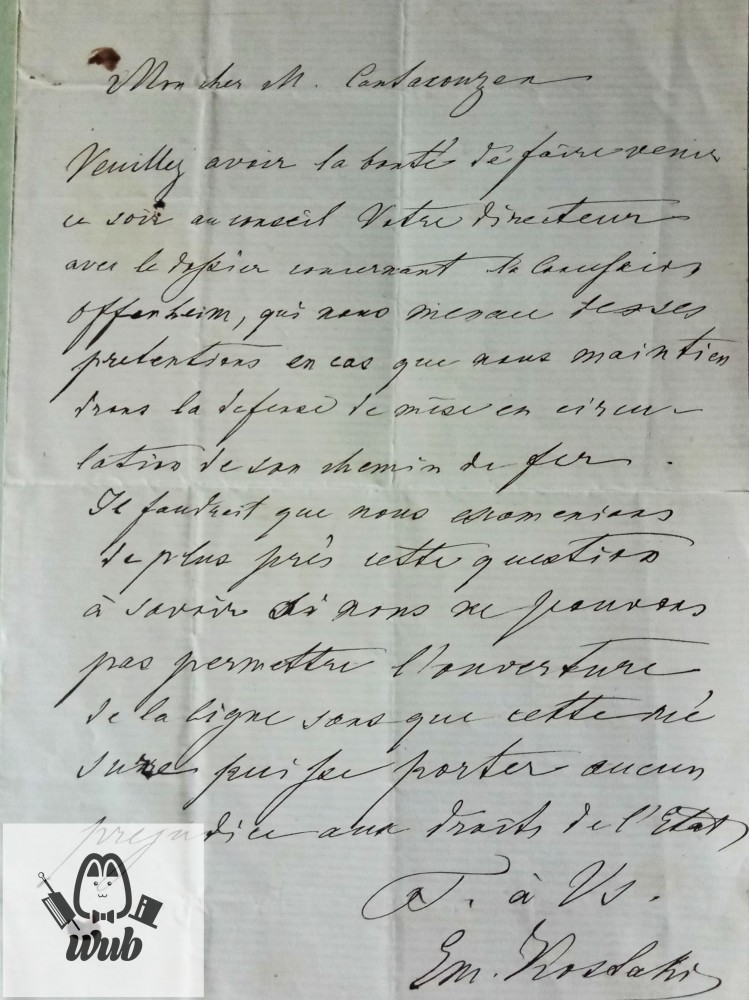 Mon cher M. Cantacouzen
Veuillez avoir la bonté de faire venir
ce soir au conseil Votre directeur
avec le dossier concernant la
Offenheim, qui nous menace de ses
pretentions en cas que nous maintien
drons la defense de mise en circu-
lation de son chemin de fer.
Il faudrait que nous examenions
de plus près cette question
à savoir si nous ne pouvons
pas permettre l'ouverture
de la ligne sans que cette mé
sure puisse porter aucun
prejudice aux droits de l'Etat
T. à Vs.
Em.
Wub